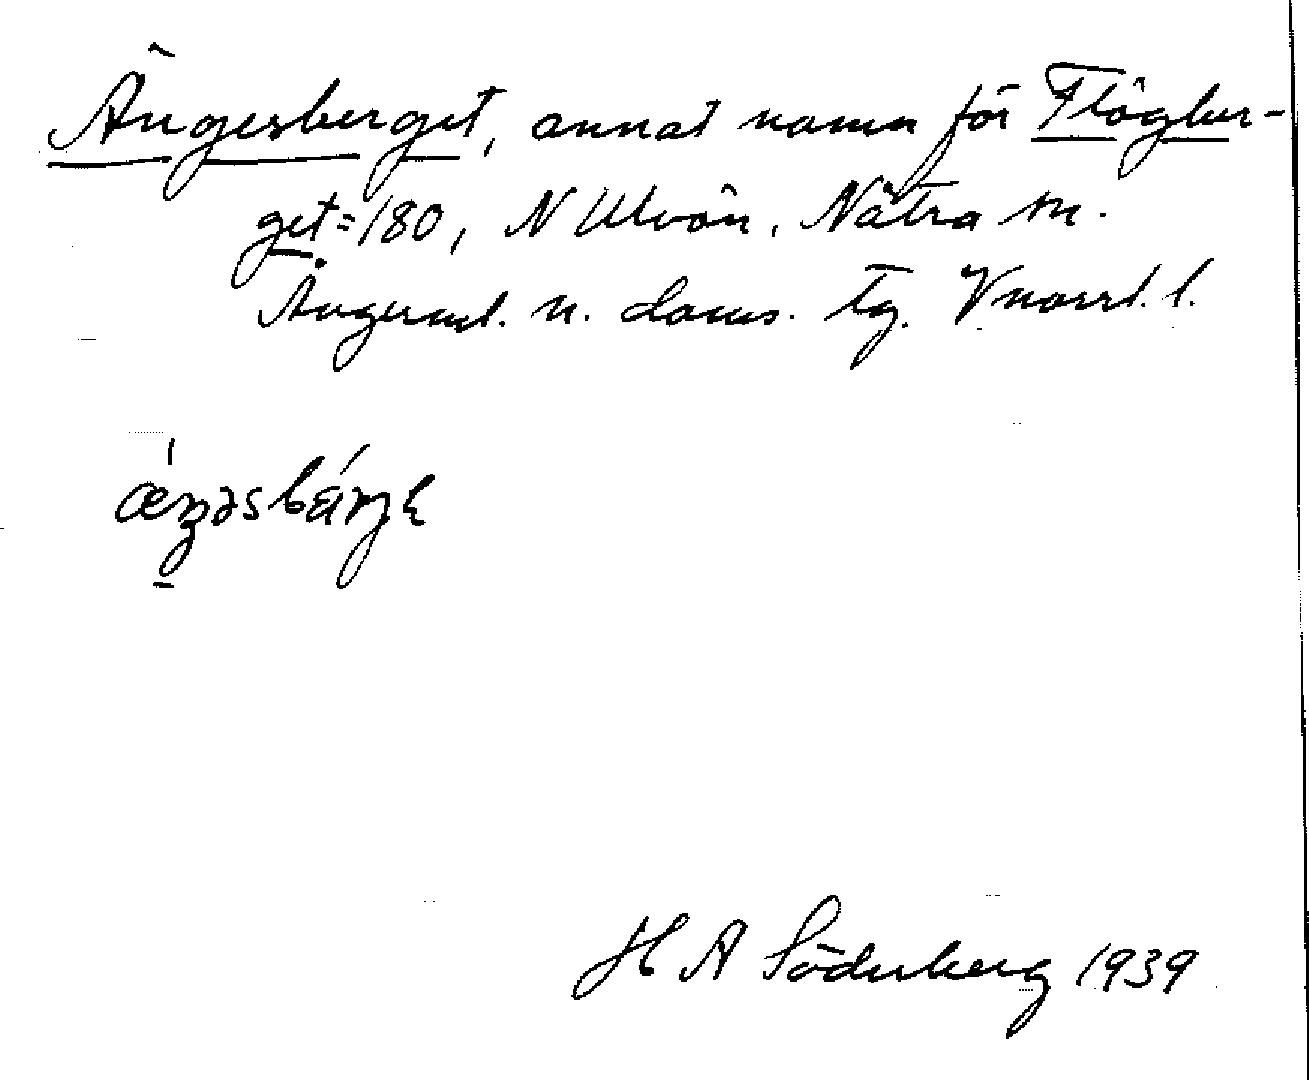 Ängesberget, annat namn för Flögber-
get = 180, N Ulvön, Nätra sn.
Ångerml. n. doms. tg. Vnorrl. l.
H A Söderberg 1939